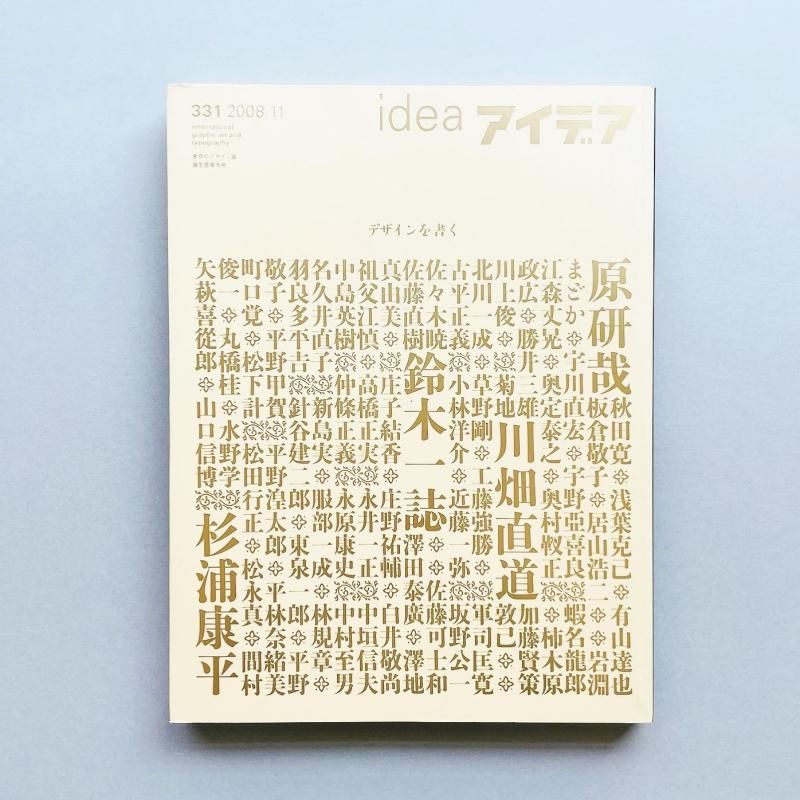 331 2008.11
international
graphic art and
typography
世界のデザイン誌
誠文堂新光社
idea アイデア
デザインを書く
原研哉
秋田寛 浅葉克己 有山達也
板倉敬子 居山浩二 岩淵
まどか 宇川直宏 宇野亞喜良 蝦名龍郎
江森丈晃 奥定泰之 奥村靫正 柿木原
政広 勝井三雄 加藤賢策
川畑直道
川上俊 菊地敦己
北川一成 草野剛 工藤強勝 軍司匡寛
古平正義 小林洋介 近藤一弥 坂野公一
佐々木暁 佐藤可士和
鈴木一誌
佐藤直樹 澤田泰廣 澤地
真山美 庄子結香 庄野祐輔 白井敬尚
祖父江慎 高橋正実 永井一正 中垣信夫
中島英樹 仲條正義 永原康史 中村至男
名久井直子 新島実 服部一成 林規章
羽良多平吉 針谷建二郎 東泉一郎 平野
敬子 平野甲賀 平野湟太郎 平林奈緒美
町口覚 松下計 松田行正 松永真 間村
俊一 丸橋桂 水野学
矢萩喜從郎 山口信博
杉浦康平